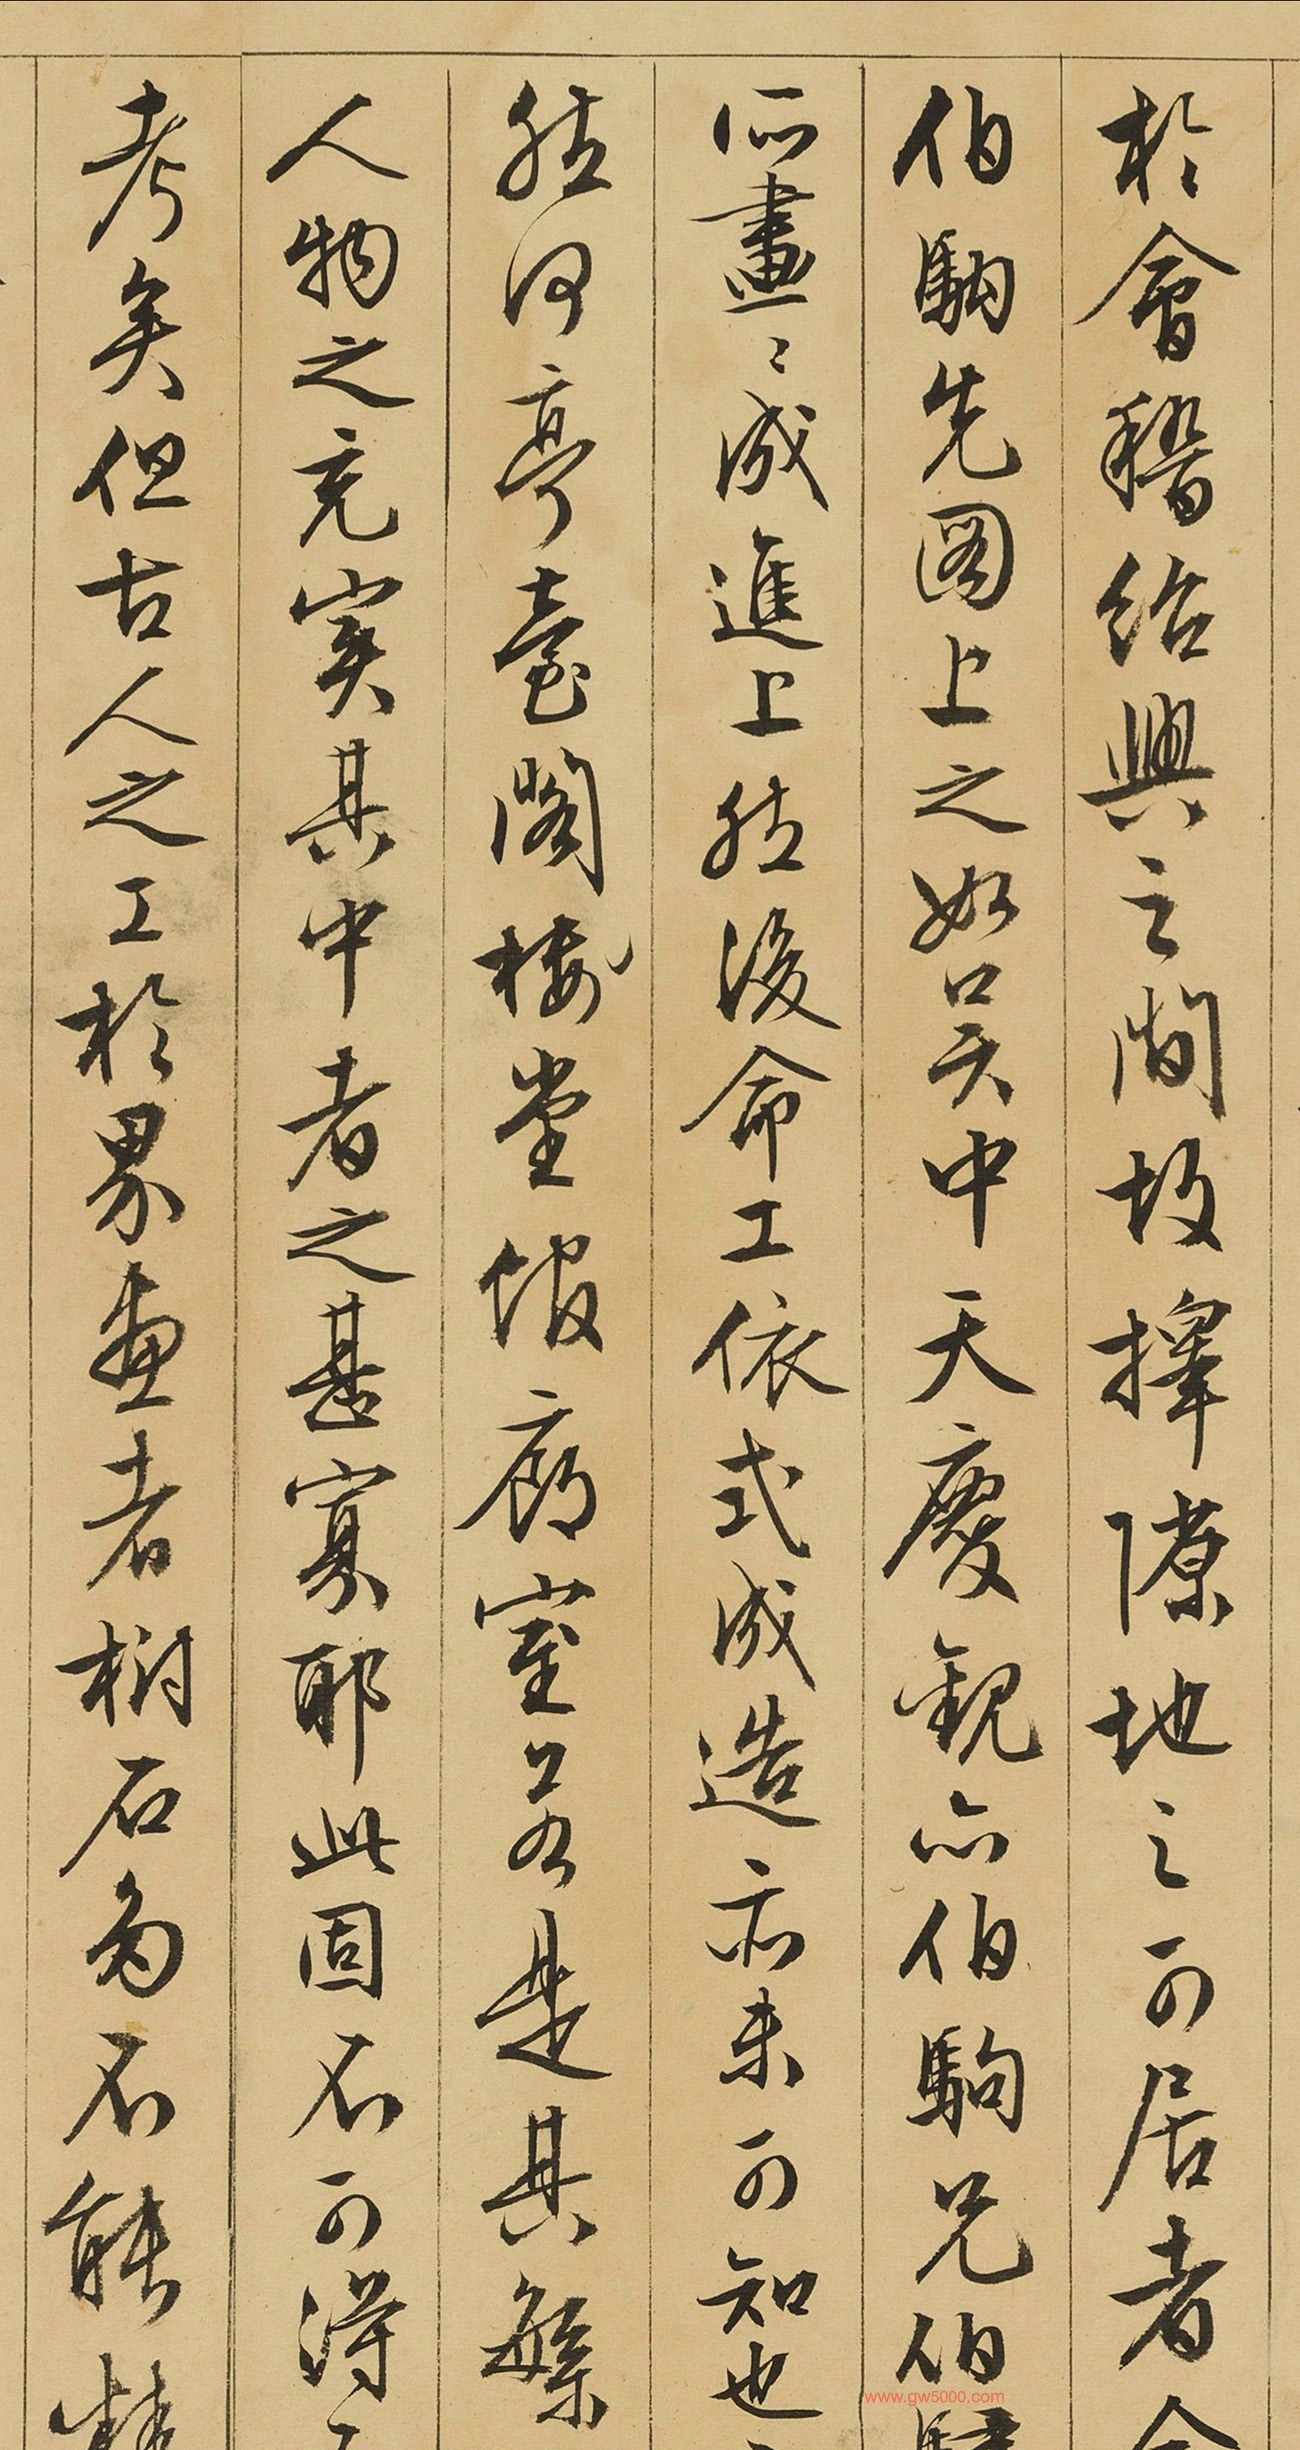 於會稽紹興之間故擇隙地之可居者令
伯駒先圖上之如吳中天慶觀亦伯駒兄伯驌
所畫〻成進上然後命工依式成造亦未可知也
然何亭臺閣樓堂館廊室若是其緐
人物之充實其中者之甚寡耶此固不可得
考矣但古人之工於界畫者樹石多不能精
www.gw5000.com